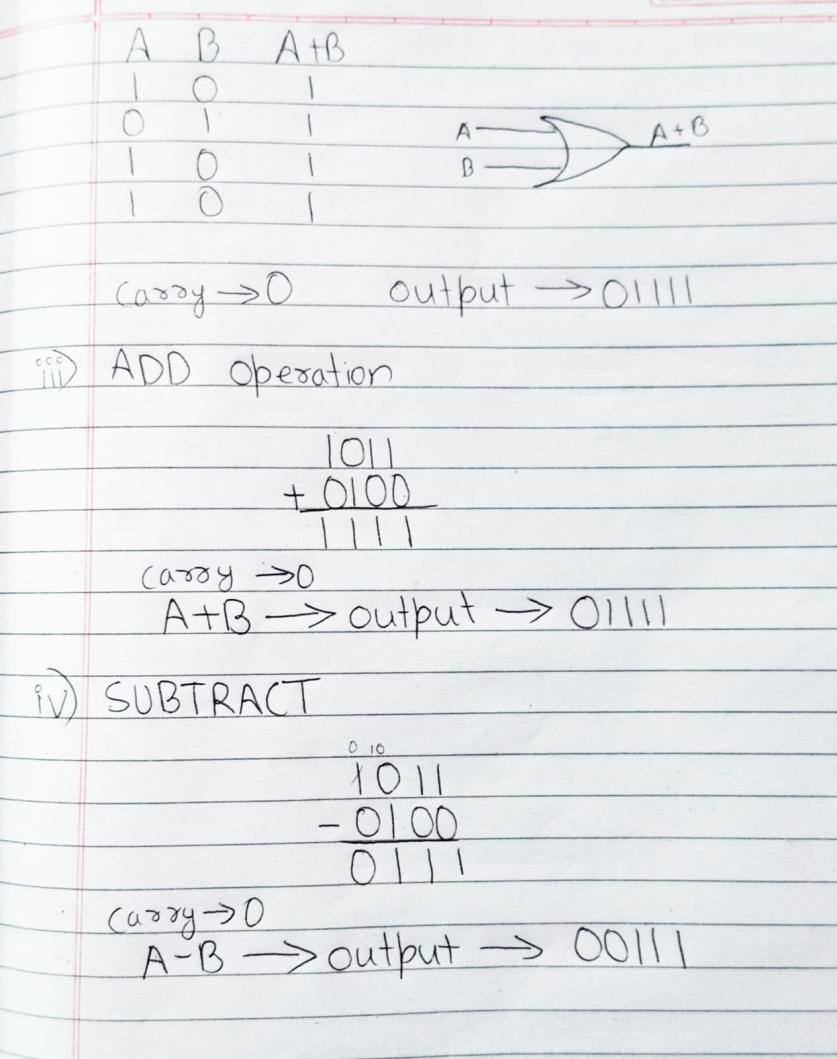 A B A+B
1 0 1
0 1 1
1 0 1
1 0 1
A
B
A+B
Carry → 0 output → 01111
iii) ADD operation
1011
+ 0100
1111
Carry → 0
A+B → output → 01111
iv) SUBTRACT
0 10
1011
- 0100
0111
Carry → 0
A-B → output → 00111